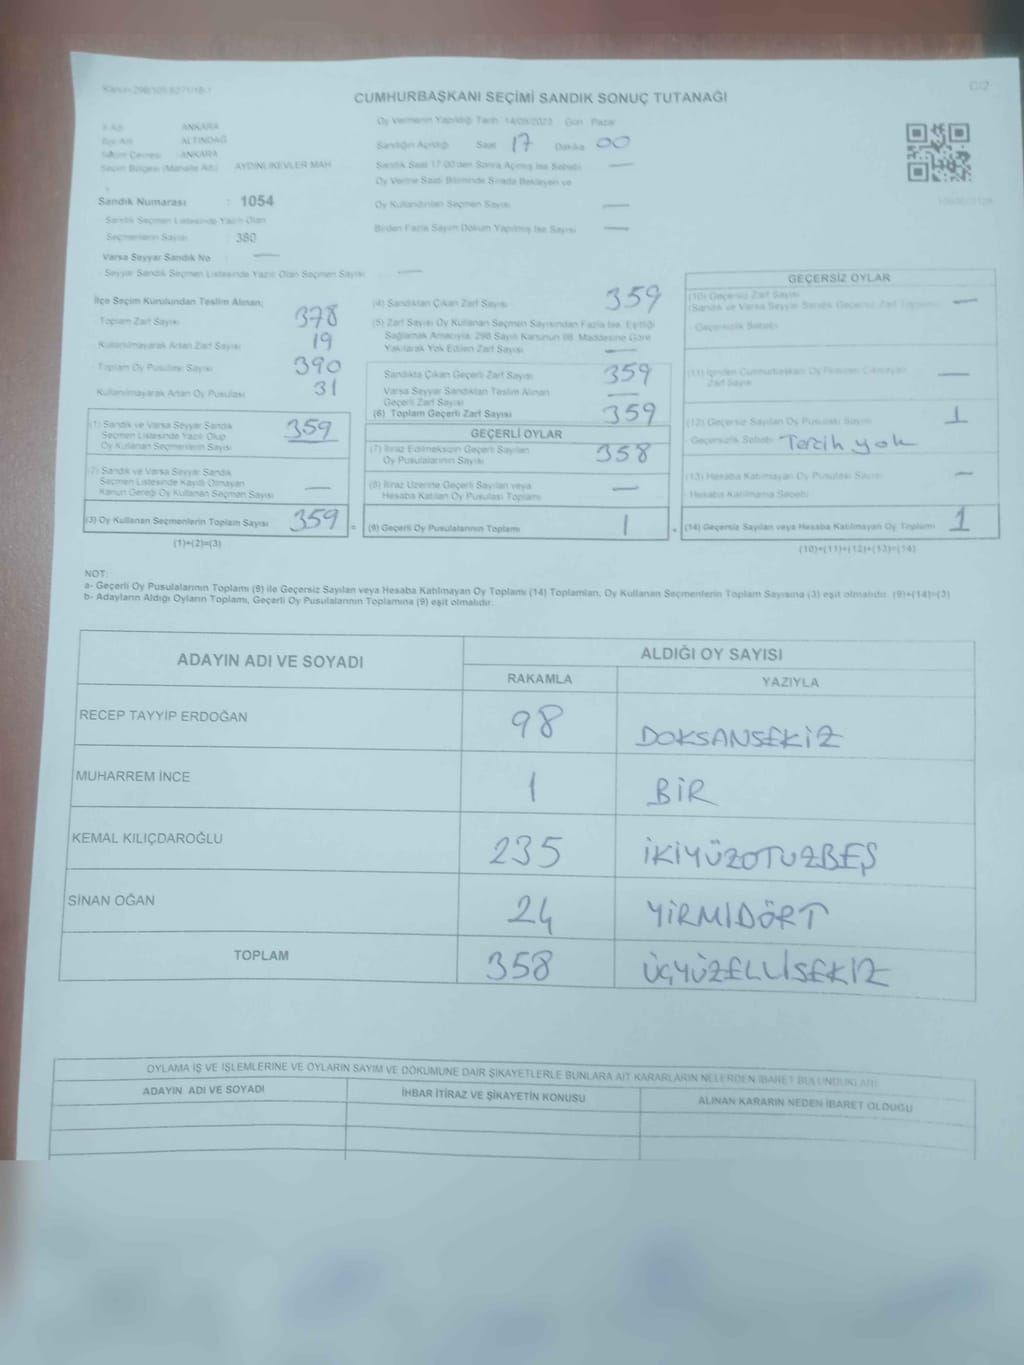 CUMHURBAŞKANI SEÇİMİ SANDIK SONUÇ TUTANAĞI
C/2
Oy Vermenin Yapıldığı Tarih 14/05/2023 Gün Pazar
ANKARA
ALTINDAĞ
ANKARA
Seçim Bölgesi (Mahalle Adı) AYDINLIKEVLER MAH
Sandığın Açıldığı Saat 17 Dakika 00
Sandık Saat 17:00'den Sonra Açılmış İse Sebebi —
Oy Verme Saati Bitiminde Sırada Bekleyen ve
Oy Kullandırılan Seçmen Sayısı —
Birden Fazla Sayım Döküm Yapılmış İse Sayısı —
Sandık Numarası : 1054
Sandık Seçmen Listesinde Yazılı Olan
Seçmenlerin Sayısı : 380
Varsa Seyyar Sandık No —
Seyyar Sandık Seçmen Listesinde Yazılı Olan Seçmen Sayısı —
İlçe Seçim Kurulundan Teslim Alınan;
Toplam Zarf Sayısı 378
Kullanılmayarak Artan Zarf Sayısı 19
Toplam Oy Pusulası Sayısı 390
Kullanılmayarak Artan Oy Pusulası 31
(1) Sandık ve Varsa Seyyar Sandık
Seçmen Listesinde Yazılı Olup
Oy Kullanan Seçmenlerin Sayısı 359
(2) Sandık ve Varsa Seyyar Sandık
Seçmen Listesinde Kayıtlı Olmayan
Kanun Gereği Oy Kullanan Seçmen Sayısı —
(3) Oy Kullanan Seçmenlerin Toplam Sayısı 359 =
(1)+(2)=(3)
(4) Sandıktan Çıkan Zarf Sayısı 359
(5) Zarf Sayısı Oy Kullanan Seçmen Sayısından Fazla İse, Eşitliği
Sağlamak Amacıyla, 298 Sayılı Kanunun 98. Maddesine Göre
Yakılarak Yok Edilen Zarf Sayısı —
Sandıkta Çıkan Geçerli Zarf Sayısı 359
Varsa Seyyar Sandıktan Teslim Alınan
Geçerli Zarf Sayısı —
(6) Toplam Geçerli Zarf Sayısı 359
GEÇERLİ OYLAR
(7) İtiraz Edilmeksizin Geçerli Sayılan
Oy Pusulalarının Sayısı 358
(8) İtiraz Üzerine Geçerli Sayılan veya
Hesaba Katılan Oy Pusulası Toplamı —
(9) Geçerli Oy Pusulalarının Toplamı 1 +
GEÇERSİZ OYLAR
(10) Geçersiz Zarf Sayısı
(Sandık ve Varsa Seyyar Sandık Geçersiz Zarf Toplamı) —
Geçersizlik Sebebi
(11) İçinden Cumhurbaşkanı Oy Pusulası Çıkmayan
Zarf Sayısı —
(12) Geçersiz Sayılan Oy Pusulası Sayısı 1
Geçersizlik Sebebi Tercih yok
(13) Hesaba Katılmayan Oy Pusulası Sayısı —
Hesaba Katılmama Sebebi
(14) Geçersiz Sayılan veya Hesaba Katılmayan Oy Toplamı 1
(10)+(11)+(12)+(13)=(14)
NOT:
a- Geçerli Oy Pusulalarının Toplamı (9) ile Geçersiz Sayılan veya Hesaba Katılmayan Oy Toplamı (14) Toplamları, Oy Kullanan Seçmenlerin Toplam Sayısına (3) eşit olmalıdır. (9)+(14)=(3)
b- Adayların Aldığı Oyların Toplamı, Geçerli Oy Pusulalarının Toplamına (9) eşit olmalıdır.
ADAYIN ADI VE SOYADI ALDIĞI OY SAYISI
RAKAMLA YAZIYLA
RECEP TAYYİP ERDOĞAN 98 DOKSANSEKİZ
MUHARREM İNCE 1 BİR
KEMAL KILIÇDAROĞLU 235 İKİYÜZOTUZBEŞ
SİNAN OĞAN 24 YİRMİDÖRT
TOPLAM 358 ÜÇYÜZELLİSEKİZ
OYLAMA İŞ VE İŞLEMLERİNE VE OYLARIN SAYIM VE DÖKÜMÜNE DAİR ŞİKAYETLERLE BUNLARA AİT KARARLARIN NELERDEN İBARET BULUNDUKLARI
ADAYIN ADI VE SOYADI İHBAR İTİRAZ VE ŞİKAYETİN KONUSU ALINAN KARARIN NEDEN İBARET OLDUĞU